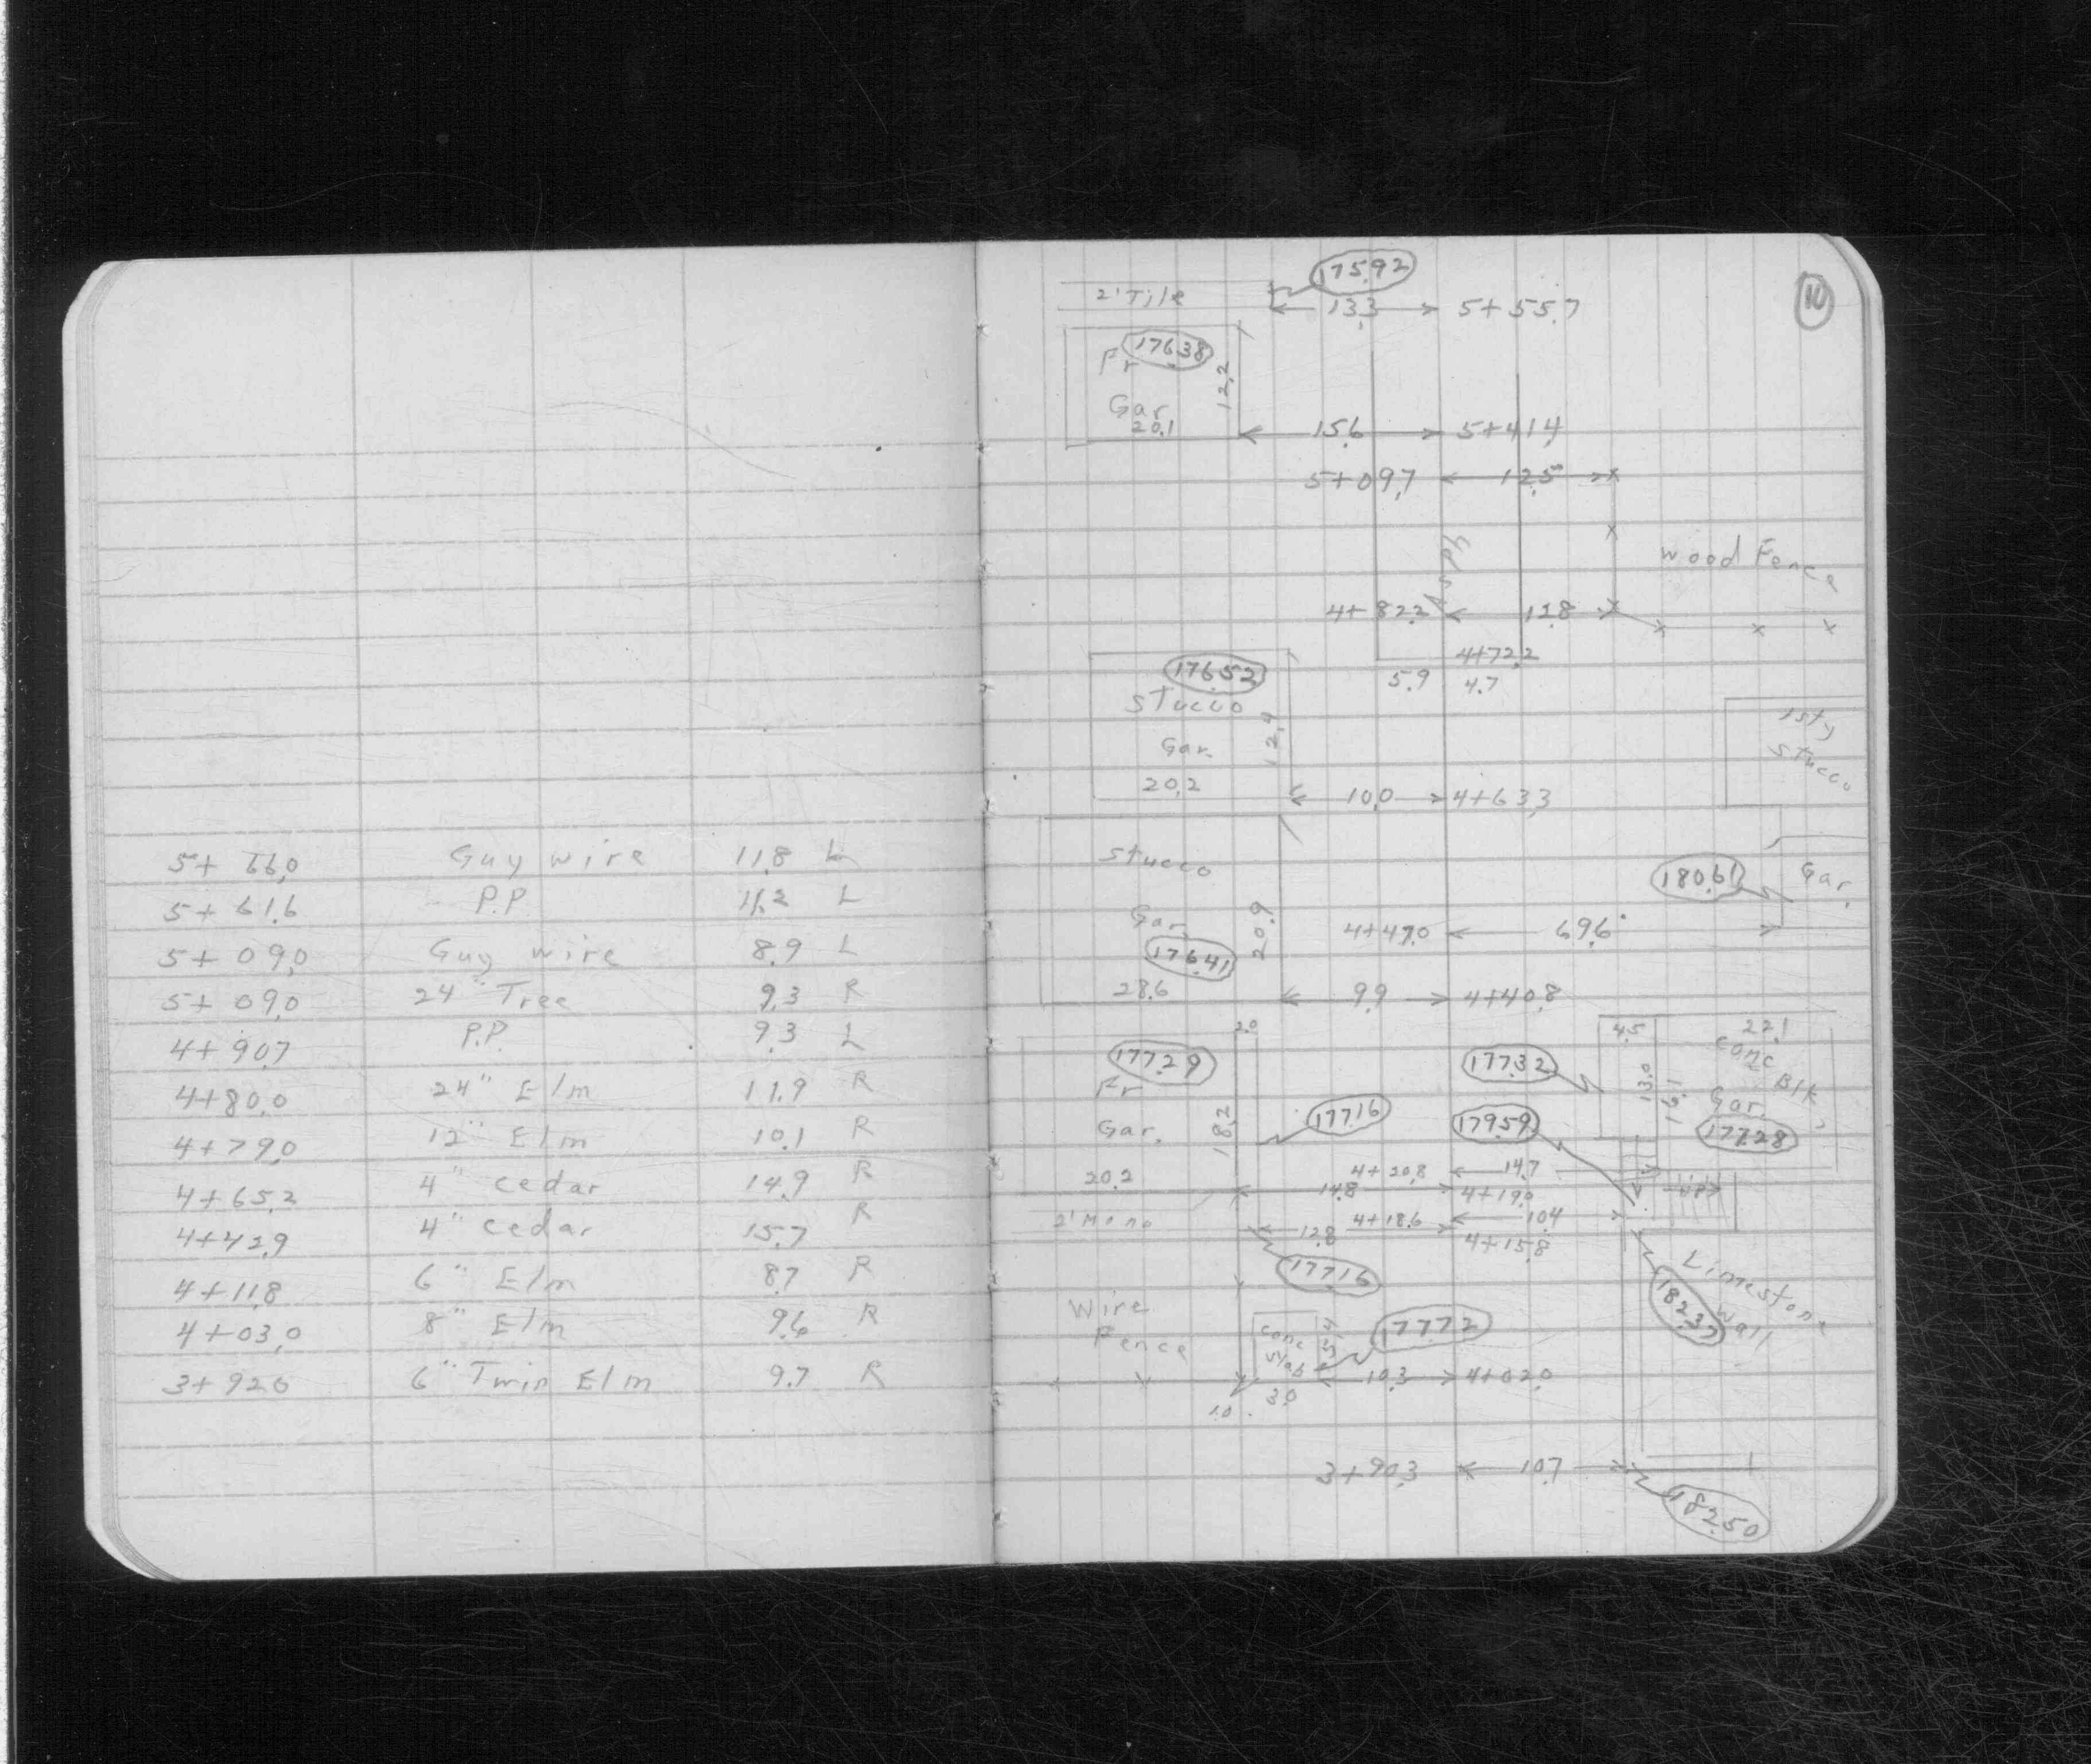 5+66.0 Guy wire 11.8 L
5+61.6 P.P. 11.2 L
5+09.0 Guy wire 8.9 L
5+09.0 24" Tree 9.3 R
4+90.7 P.P. 9.3 L
4+80.0 24" Elm 11.9 R
4+79.0 12" Elm 10.1 R
4+65.2 4" cedar 14.9 R
4+42.9 4" cedar 15.7 R
4+11.8 6" Elm 8.7 R
4+03.0 8" Elm 9.6 R
3+92.0 6" Twin Elm 9.7 R
10
175.92
2' Tile 13.3 5+55.7
176.38
Fr
Gar. 12.2
20.1
15.6 5+41.4
5+09.7 12.5
Asph
Wood Fence
4+82.2 12.8
4+72.2
5.9 4.7
176.52
Stucco
Gar. 12.4
20.2
10.0 4+63.3
1sty
Stucco
Stucco
Gar. 20.9
176.41
28.6
180.61 Gar.
4+47.0 69.6
9.9 4+40.8
2.0
177.29
Fr
Gar. 18.2
20.2
177.16
177.32
179.59
4.5 22.1
Conc
Blk
Gar.
13.0 19.1
177.28
4+20.8 14.7
14.8 4+19.0
2' Mono
4+18.6 10.4
12.8 4+15.8
177.16
Limestone
Wall
182.37
Wire
Fence
Conc
Slab
177.72
10.3 4+02.0
3.0
1.0
3+90.3 10.7
182.50